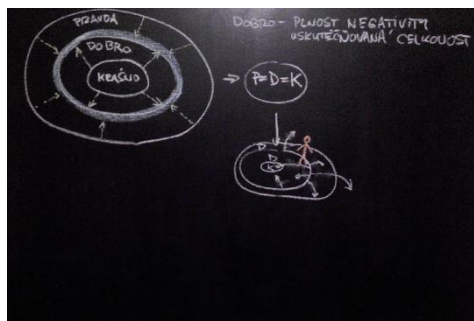 PRAVDA
DOBRO
KRÁSNO
DOBRO – PLNOST NEGATIVITY
USKUTEČŇOVANÁ CELKOVOST
P=D=K
P
D
K